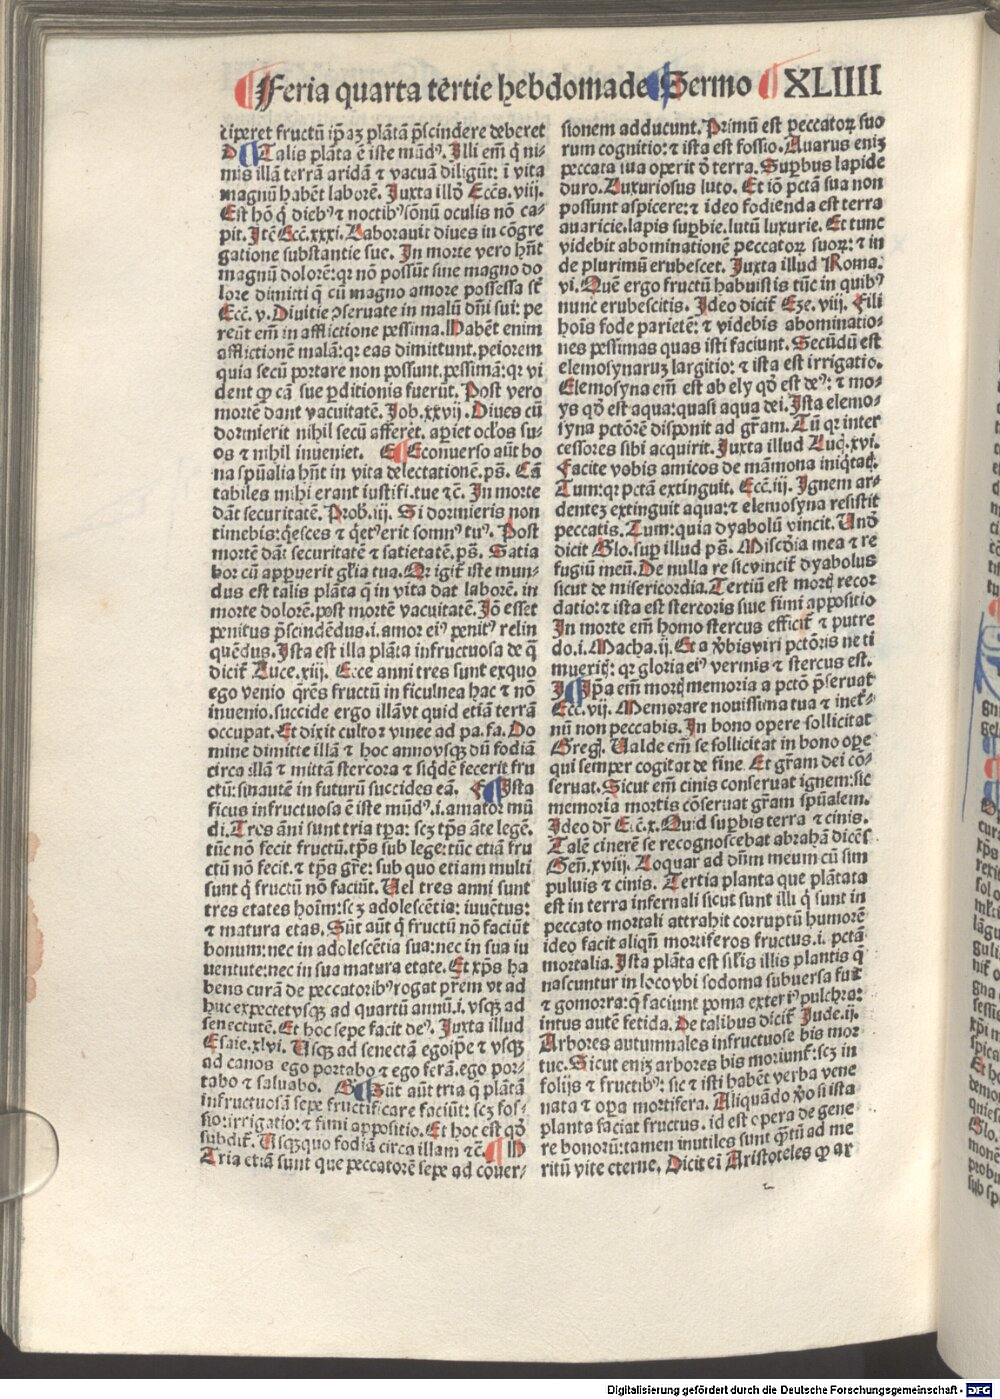 Feria quarta tertie hebdomade Sermo XLIIII
ciperet fructū ip̄aꝫ plātā p̄scindere deberet
D Talis plāta ē iste mūdꝰ. Illi em̄ q̄ ni-
mis illā terrā aridā ⁊ vacuā diligūt: ī vita
magnū habēt laborē. Juxta illḋ Eccs̄. viij.
Est hō q̄ diebꝰ ⁊ noctibꝰ sōnū oculis nō ca-
pit. Jtē Eccī. xxxi. Laborauit diues in cōgre
gatione substantie sue. In morte vero hn̄t
magnū dolorē: qꝛ nō possūt sine magno do
lore dimitti q̄ cū magno amore possessa st̄
Eccī. v. Diuitie ꝯseruate in malū dn̄i sui: pe
reūt em̄ in afflictione pessima. Habēt enim
afflictionē malā: qꝛ eas dimittunt. peiorem
quia secū portare non possunt. pessimā: qꝛ vi
dent ꝙ cā sue ꝑditionis fuerūt. Post vero
mortē dant vacuitatē. Job. xxvij. Diues cū
dormierit nihil secū afferet. aꝑiet oclos su-
os ⁊ nihil inueniet. E Econuerso aūt bo
na spūalia hn̄t in vita delectationē. ps̄. Cā
tabiles mihi erant iustifi. tue ⁊c̄. In morte
dāt securitatē. Prob. iij. Si dormieris non
timebis: q̄esces ⁊ q̄etꝰ erit somnꝰ tuꝰ. Post
mortē dāt securitatē ⁊ satietatē. ps̄. Satia
bor cū apꝑuerit gl̄ia tua. Qꝛ igit̄ iste mun-
dus est talis plāta q̄ in vita dat laborē. in
morte dolorē. post mortē vacuitatē. Jō esset
penitus p̄scindēdus. i. amor eiꝰ penitꝰ relin
quēdus. Ista est illa plāta infructuosa de q̄
dicit̄ Luce. xiij. Ecce anni tres sunt exquo
ego venio q̄rēs fructū in ficulnea hac ⁊ nō
inuenio. succide ergo illā vt quid etiā terrā
occupat. Et dixit cultor vinee ad pa. fa. Do
mine dimitte illā ⁊ hoc anno vsqꝫ dū fodiā
circa illā ⁊ mittā stercora ⁊ siqd̄e fecerit fru
ctū: sinautē in futurū succides eā. F Ista
ficus infructuosa ē iste mūdꝰ. i. amator mū
di. Tres āni sunt tria tp̄a: scꝫ tp̄s āte legē.
tūc nō fecit fructū. tp̄s sub lege: tūc etiā fru
ctū nō fecit. ⁊ tp̄s gr̄e: sub quo etiam multi
sunt q̄ fructū nō faciūt. Uel tres anni sunt
tres etates hoīm: scꝫ adolescētia: iuuētus:
⁊ matura etas. Sūt aūt q̄ fructū nō faciūt
bonum: nec in adolescētia sua: nec in sua iu
uentute: nec in sua matura etate. Et xp̄s ha
bens curā de peccatoribꝰ rogat prēm vt ad
huc expectet vsqꝫ ad quartū annū. i. vsqꝫ ad
senectutē. Et hoc sepe facit deꝰ. Juxta illud
Esaie. xlvi. Usqꝫ ad senectā ego ipe ⁊ vsqꝫ
ad canos ego portabo ⁊ ego ferā. ego por-
tabo ⁊ saluabo. G Sūt aūt tria q̄ plātā
infructuosā sepe fructificare faciūt: scꝫ fos-
sio: irrigatio: ⁊ fimi appositio. Et hoc est qḋ
subdit̄. Usqꝫquo fodiā circa illam ⁊c̄. H
Tria etiā sunt que peccatorē sepe ad cōuer-
sionem adducunt. Primū est peccatoꝝ suo
rum cognitio: ⁊ ista est fossio. Auarus eniꝫ
peccata sua operit ō terra. Suꝑbus lapide
duro. Luxuriosus luto. Et iō pctā sua non
possunt aspicere: ⁊ ideo fodienda est terra
auaricie. lapis suꝑbie. lutū luxurie. Et tunc
videbit abominationē peccatoꝝ suoꝝ: ⁊ in
de plurimū erubescet. Juxta illud Roma.
vi. Quē ergo fructū habuistis tūc in quibꝰ
nunc erubescitis. Ideo dicit̄ Eze. viij. Fili
hoīs fode parietē: ⁊ videbis abominatio-
nes pessimas quas isti faciunt. Secūdū est
elemosynaruꝫ largitio: ⁊ ista est irrigatio.
Elemosyna em̄ est ab ely qḋ est deꝰ: ⁊ mo-
ys qḋ est aqua: quasi aqua dei. Ista elemo-
syna pctōrē disponit ad gr̄am. Tū qꝛ inter
cessores sibi acquirit. Juxta illud Luc̄. xvi.
Facite vobis amicos de māmona iniq̄tat̄.
Tum: qꝛ pctā extinguit. Eccī. iij. Ignem ar-
denteꝫ extinguit aqua: ⁊ elemosyna resistit
peccatis. Tum: quia dyabolū vincit. Unḋ
dicit Glo. suꝑ illud ps̄. Misc̄dia mea ⁊ re
fugiū meū. De nulla re sic vincit̄ dyabolus
sicut de misericordia. Tertiū est mort̄ recor
datio: ⁊ ista est stercoris siue fimi appositio
In morte em̄ homo stercus efficit̄ ⁊ putre
do. i. Macha. ij. Et a v̄bis viri pctōris ne ti
muerit̄: qꝛ gloria eiꝰ vermis ⁊ stercus est.
I Ip̄a em̄ mort̄ memoria a pctō p̄seruat
Eccī. vij. Memorare nouissima tua ⁊ inet̄-
nū non peccabis. In bono opere sollicitat
Greg. Ualde em̄ se sollicitat in bono oꝑe
qui semper cogitat de fine. Et gr̄am dei cō-
seruat. Sicut em̄ cinis conseruat ignem: sic
memoria mortis cōseruat gr̄am spūalem.
Ideo dr̄ Eccī. x. Quid suꝑbis terra ⁊ cinis.
Talē cinerē se recognoscebat abrahā dicēs
Gen̄. xviij. Loquar ad dn̄m meum cū sim
puluis ⁊ cinis. Tertia planta que plātata
est in terra infernali sicut sunt illi q̄ sunt in
peccato mortali attrahit corruptū humorē
ideo facit aliqn̄ mortiferos fructus. i. pctā
mortalia. Ista plāta est sil̄is illis plantis q̄
nascuntur in loco vbi sodoma subuersa fuit
⁊ gomorra: q̄ faciunt poma exteriꝰ pulchra:
intus autē fetida. De talibus dicit̄ Jude. ij.
Arbores autumnales infructuose bis mor
tue. Sicut eniꝫ arbores bis moriunt̄: scꝫ in
folijs ⁊ fructibꝰ: sic ⁊ isti habēt verba vene
nata ⁊ oꝑa mortifera. Aliquādo v̄o si ista
planta faciat fructus. id est opera de gene
re bonorū: tamen inutiles sunt q̄tū ad me
ritū vite eterne. Dicit ei Aristoteles ꝙ ar
Digitalisierung gefördert durch die Deutsche Forschungsgemeinschaft - DFG